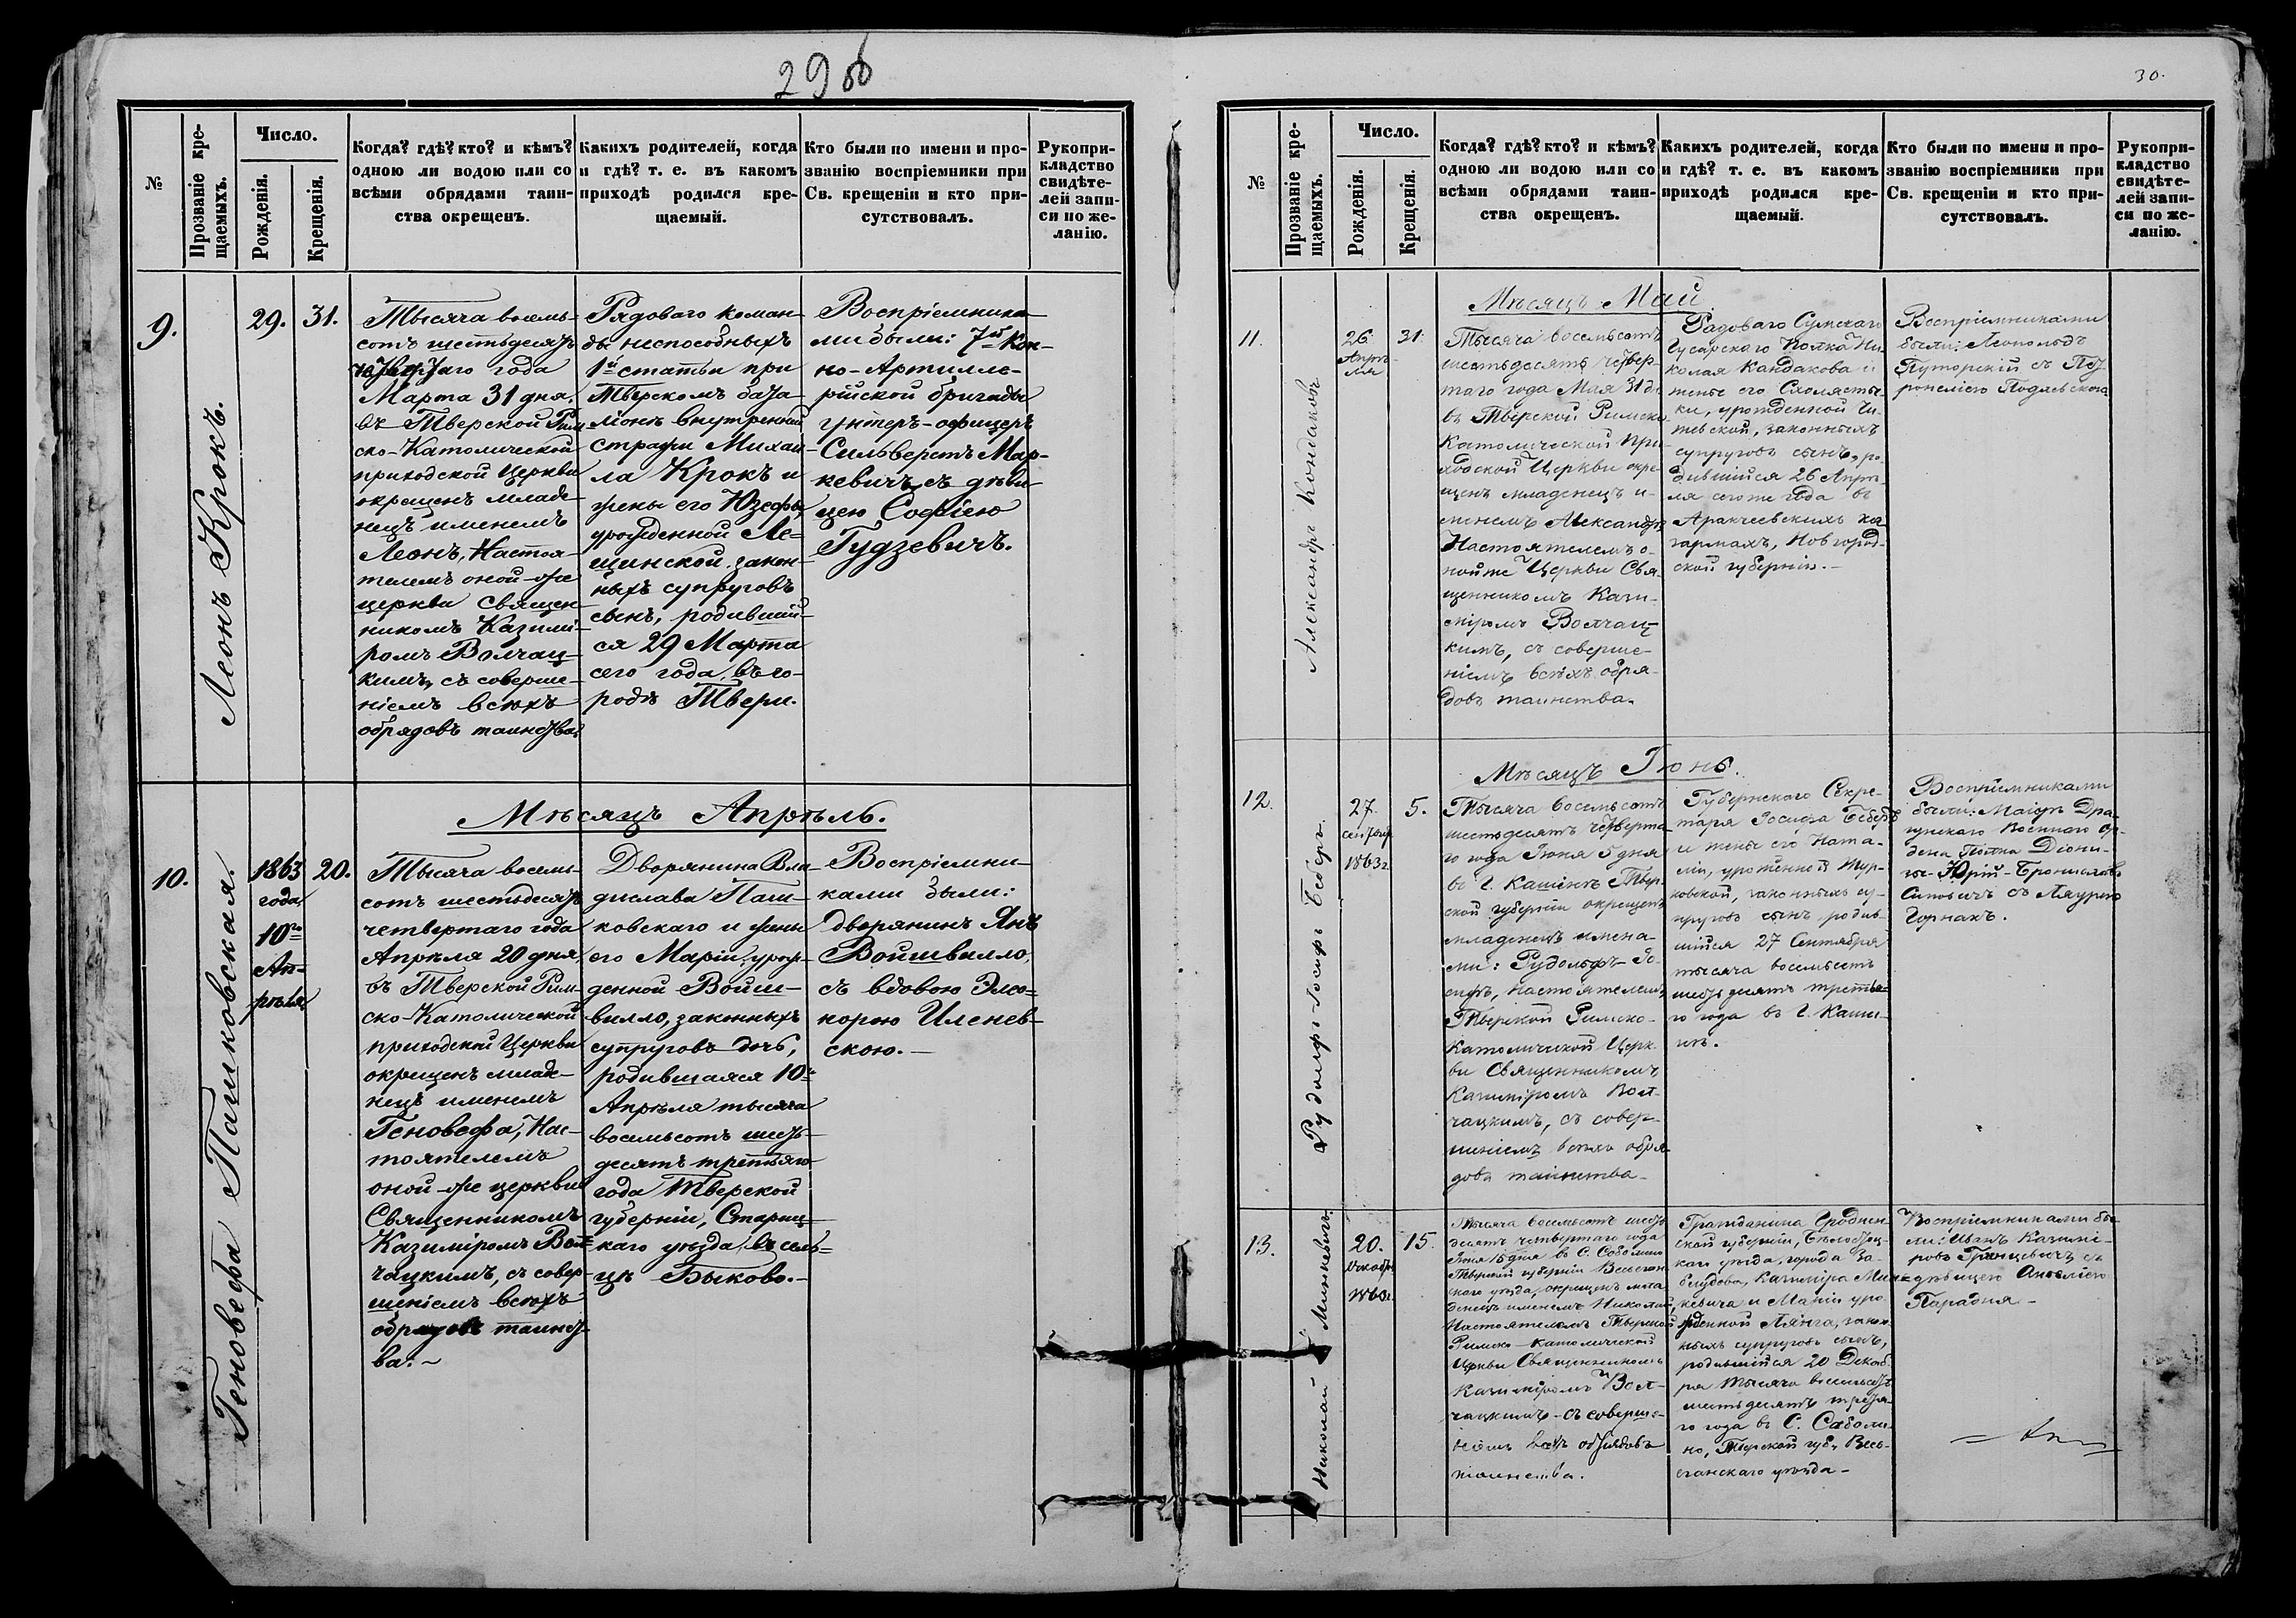 29 об
№
Прозваніе кре-
щаемыхъ.
Число.
Рожденія.
Крещенія.
Когда? гдѣ? кто? и кѣмъ?
одною ли водою или со
всѣми обрядами таин-
ства окрещенъ.
Какихъ родителей, когда
и гдѣ? т. е. въ какомъ
приходѣ родился кре-
щаемый.
Кто были по имени и про-
званію воспріемники при
Св. крещеніи и кто при-
сутствовалъ.
Рукопри-
кладство
свидѣте-
лей запи-
си по же-
ланію.
9.
Леонъ Крокъ.
29.
31.
Тысяча восемь-
сотъ шестьдесятъ
четвертаго года
Марта 31 дня,
въ Тверской Рим-
ско-Католической
приходской Церкви
окрещенъ младе-
нецъ именемъ
Леонъ, Настоя-
телемъ оной-же
церкви Священ-
никомъ Казимі-
ромъ Волчац-
кимъ, съ соверше-
ніемъ всѣхъ
обрядовъ таинства.
Рядоваго коман-
ды неспособныхъ
1й статьи при
Тверскомъ бата-
ліонѣ внутренней
стражи Михаи-
ла Крокъ и
жены его Юзефы,
урожденной Ле-
щинской, закон-
ныхъ супруговъ
сынъ, родившій-
ся 29 Марта
сего года, въ го-
родѣ Твери.
Воспріемника-
ми были: 7й Кон-
но-Артилле-
рійской бригады
унтеръ-офицеръ
Сильверстъ Мар-
кевичъ, съ дѣви-
цею Софіею
Гудзевичъ.
Мѣсяцъ Апрѣль.
10.
Геновефа Пашковская.
1863
года
10го
Ап-
рѣля
20.
Тысяча восемь-
сотъ шестьдесятъ
четвертаго года
Апрѣля 20 дня,
въ Тверской Рим-
ско-Католической
приходской Церкви
окрещенъ младе-
нецъ именемъ
Геновефа, Нас-
тоятелемъ
оной-же церкви
Священникомъ
Казиміромъ Вол-
чацкимъ, съ совер-
шеніемъ всѣхъ
обрядовъ таинст-
ва. ~
Дворянина Вла-
дислава Паш-
ковскаго и жены
его Маріи, урож-
денной Войш-
вилло, законныхъ
супруговъ дочь,
родившаяся 10го
Апрѣля тысяча
восемьсотъ шесть-
десятъ третьяго
года Тверской
губерніи, Стариц-
каго уѣзда, въ сель-
цѣ Быково.—
Воспріемни-
ками были:
дворянинъ Янъ
Войшвилло,
съ вдовою Элео-
норою Иленев-
скою.—
30.
№
Прозваніе кре-
щаемыхъ.
Число.
Рожденія.
Крещенія.
Когда? гдѣ? кто? и кѣмъ?
одною ли водою или со
всѣми обрядами таин-
ства окрещенъ.
Какихъ родителей, когда
и гдѣ? т. е. въ какомъ
приходѣ родился кре-
щаемый.
Кто были по имени и про-
званію воспріемники при
Св. крещеніи и кто при-
сутствовалъ.
Рукопри-
кладство
свидѣте-
лей запи-
си по же-
ланію.
Мѣсяцъ Май
11.
Александръ Кондаковъ
26
Апрѣ-
ля
31.
Тысяча восемьсотъ
шестьдесятъ четвер-
таго года Мая 31 дн.
въ Тверской Римско
Католической При-
ходской Церкви окре-
щенъ младенецъ и-
менемъ Александръ
Настоятелемъ о-
нойже Церкви Свя-
щенникомъ Кази-
міромъ Волчац-
кимъ, съ соверше-
ніемъ всѣхъ обря-
довъ таинства.
Рядоваго Сумскаго
Гусарскаго Полка Ни-
колая Кандакова и
жены его Схоласты-
ки, урожденной
законныхъ
супруговъ сынъ, ро-
дившійся 26 Апрѣ-
ля сегоже года въ
Аракчеевскихъ ка-
зармахъ, Новгород-
ской губерніи.—
Воспріемниками
были: Леопольдъ
Путорскій съ Пет-
ронелією
Мѣсяцъ Іюнь.
12.
Рудольфъ-Іосифъ Беберъ
27.
сентябр
1863г.
5.
Тысяча восемьсотъ
шестьдесятъ четверта-
го года Іюня 5 дня
въ Г. Кашинѣ Твер-
ской губерніи окрещенъ
младенецъ имена-
ми: Рудольфъ-Іо-
сифъ, Настоятелемъ
Тверской Римско-
Католической Церк-
ви Священникомъ
Казиміромъ Вол-
чацкимъ, съ совер-
шеніемъ всѣхъ обря-
довъ таинства—
Губернскаго Секре-
таря Іосифа Беберъ
и жены его Ната-
ліи, урожденной Тур-
ковской, законныхъ су-
пруговъ сынъ родив-
шійся 27 Сентября
тысяча восемьсотъ
шестьдесятъ третья-
го года въ Г. Каши-
нѣ.
Воспріемниками
были: Маіоръ Дра-
гунскаго Военнаго Ор-
дена Полка Діони-
зъ-Юрій-Брониславъ
съ Лаурою
Горнахъ.
13.
Николай Минкевичъ
20.
Декабр.
1863г.
15.
Тысяча восемьсотъ шесть-
десятъ четвертаго года
Іюня 15 дня въ С. Соболино
Тверской губерніи Весьегон-
скаго уѣзда, окрещенъ мла-
денецъ именемъ Николай,
Настоятелемъ Тверской
Римско-Католической
Церкви Священникомъ
Казиміромъ Вол-
чацкимъ съ соверше-
ніемъ всѣхъ обрядовъ
таинства.
Гражданина Гроднен-
ской губерніи, Бѣлостоц-
каго уѣзда, города За-
блудова, Казиміра Мин-
кевича и Маріи уро-
жденной Лянга, закон-
ныхъ супруговъ сынъ,
родившійся 20 Декаб-
ря тысяча восемьсотъ
шестьдесятъ третья-
го года въ С. Соболи-
но, Тверской губ., Весь-
еганскаго уѣзда—
Воспріемниками бы-
ли: Иванъ Казимі-
ровъ съ
дѣвицею Анеліею